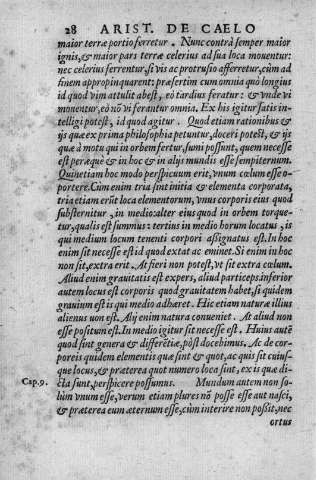 28 ARIST. DE CAELO
maior terræ portio ferretur. Nunc contrà semper maior
ignis, & maior pars terræ celerius ad sua loca mouentur:
nec celerius ferrentur, si vis ac protrusio afferretur, cùm ad
finem appropinquarent: præsertim cum omnia quò longius
id quod vim attulit abest, eò tardius feratur: & vnde vi
mouentur, eò nō vi ferantur omnia. Ex his igitur satis in-
telligi potest, id quod agitur. Quod etiam rationibus &
ijs quæ ex prima philosophia petuntur, doceri potest, & ijs
quæ à motu qui in orbem fertur, sumi possunt, quem necesse
est peræquè & in hoc & in alijs mundis esse sempiternum.
Quinetiam hoc modo perspicuum erit, vnum cœlum esse o-
portere. Cùm enim tria sint initia & elementa corporata,
tria etiam erūt loca elementorum, vnus corporis eius quod
substernitur, in medio: alter eius quod in orbem torque-
tur, qualis est summus: tertius in medio horum locatus, is
qui medium locum tenenti corpori assignatus est. In hoc
enim sit necesse est id quod extat ac eminet. Si enim in hoc
non sit, extra erit. At fieri non potest, vt sit extra cœlum.
Aliud enim grauitatis est expers, aliud particeps: inferior
autem locus est corporis quod grauitatem habet, si quidem
grauium est is qui medio adhæret. Hic etiam naturæ illius
alienus non est. Alij enim natura conueniet. At aliud non
esse positum est. In medio igitur sit necesse est. Huius autē
quod sint genera & differētiæ, pòst docebimus. Ac de cor-
poreis quidem elementis quæ sint & quot, ac quis sit cuius-
que locus, & præterea quot numero loca sint, ex is quæ di-
Cap. 9. cta sunt, perspicere possumus. Mundum autem non so-
lùm vnum esse, verum etiam plures nō posse esse aut nasci,
& præterea eum æternum esse, cùm interire non possit, nec
ortus